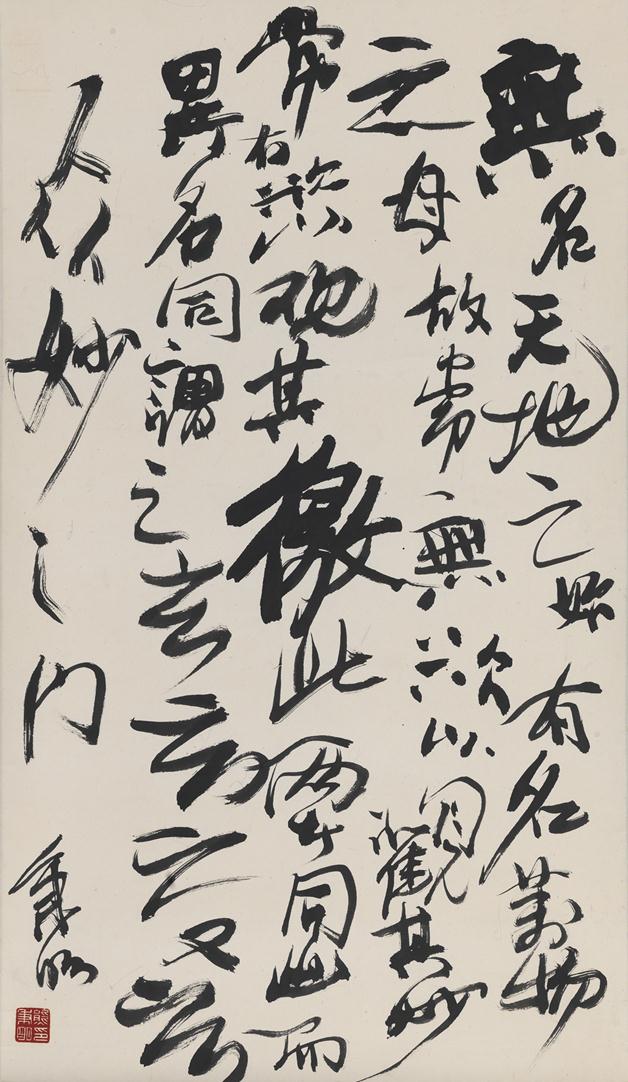 無名天地之始有名萬物
之母故常無欲以觀其妙
常有欲以觀其徼此兩者同出而
異名同謂之玄玄之又玄
众妙之门
秉明